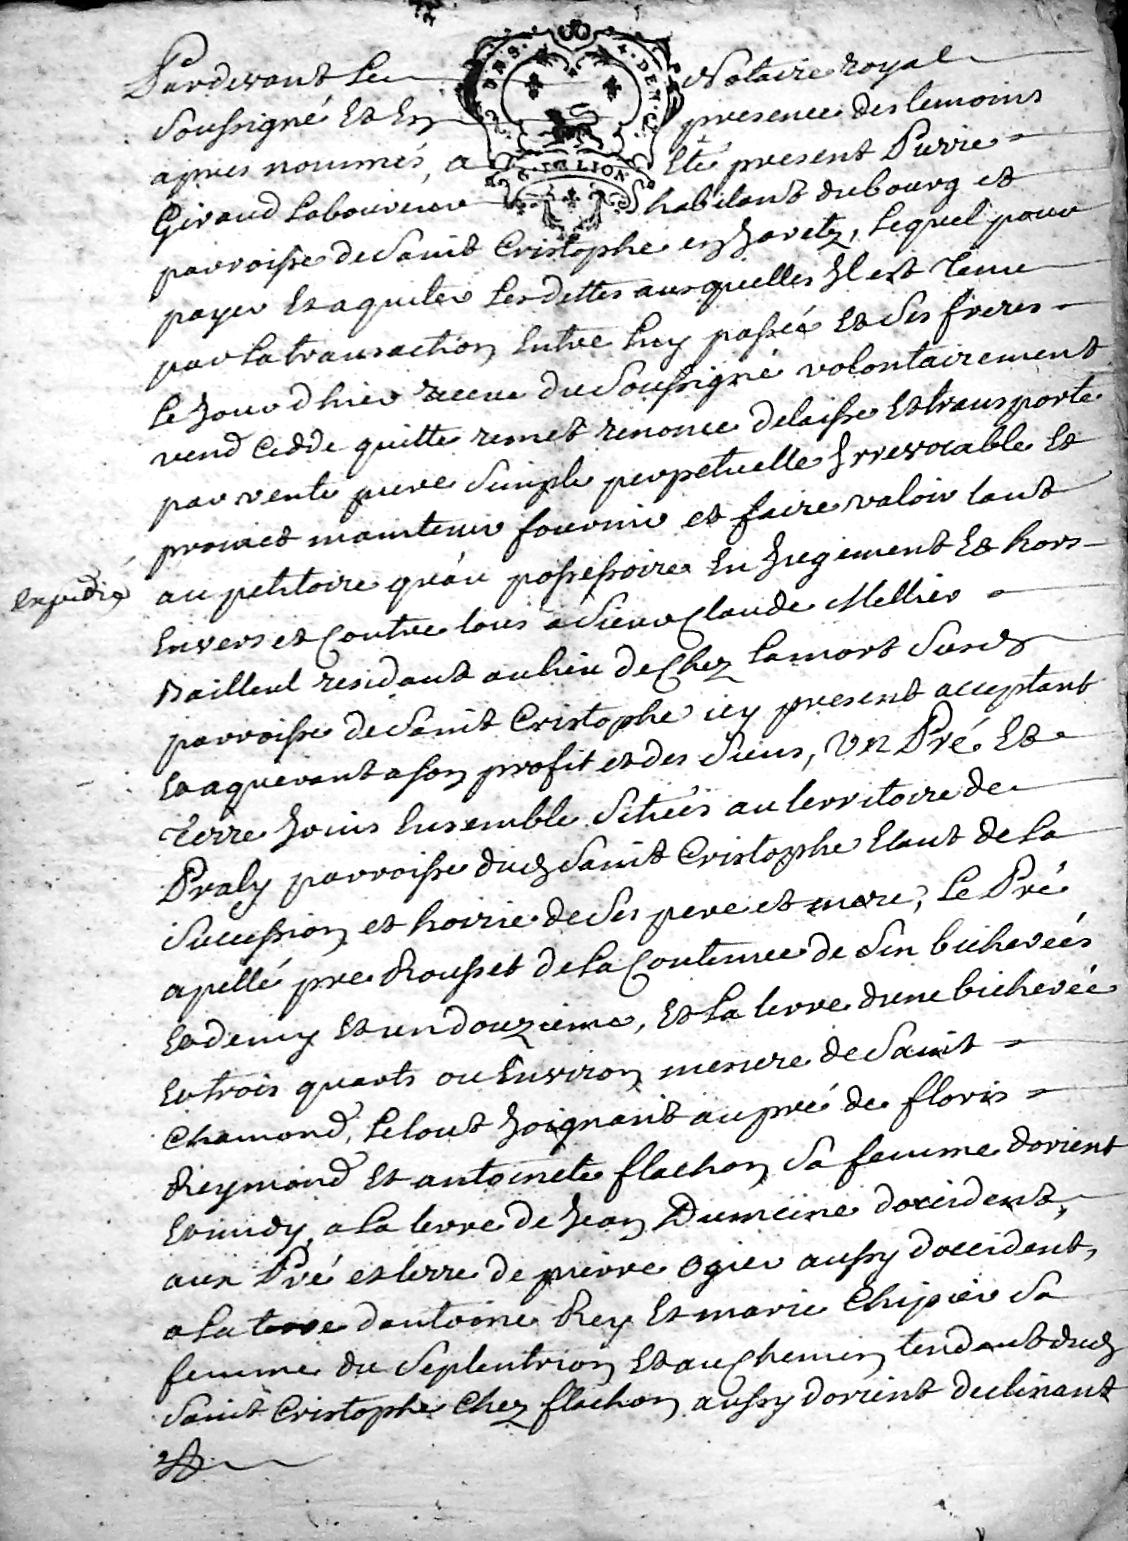 Pardevant Le Notaire royal
Soussigné Et En presence des temoins
apres nommés, a Eté present Pierre
Giraud Laboureur habitant du bourg et
parroisse de Saint Cristophe en Jaretz, Lequel pour
payer Et aquiter Les dettes ausquelles Il est Tenu
par La transaction Entre Luy passée Et Ses freres
Le Jour d'hier receue du Soussigné volontairement
vend Cedde quitte remet renonce delaisse Et transporte
par vente pure Simple perpetuelle Irrevocable Et
promet maintenir fournir et faire valoir tant
expedié
au petitoire qu'au possessoire En Jugement Et hors
Envers et Contre tous a Sieur Claude Mellier
Tailleur residant au lieu de Chez Lamort Susd
parroisse de Saint Cristophe icy present acceptant
Et aquerant a Son profit et des Siens, Un Pré Et
Terre Joins Ensemble Scitués au territoire de
Praly parroisse dud Saint Cristophe Etant de La
Sucession et hoirie de Ses pere et mere, Le Pré
apellé pre Rousset de La Contenue de Six bicherées
Et demy Et un douzieme, Et La terre d'une bicherée
Et trois quarts ou Environ mesure de Saint
Chamond, Le tout Joignant au pré de floris
Reymond Et antoinete flachon Sa femme d'orient
Et midy, a La terre de Jean Dumeine d'occident,
aux Pré et terre de pierre Ogier aussy d'occident,
a La terre d'antoine Rey Et marie Chipier Sa
femme du Septentrion Et au Chemin tendant dud
Saint Cristophe Chez flachon aussy d'orient declinant